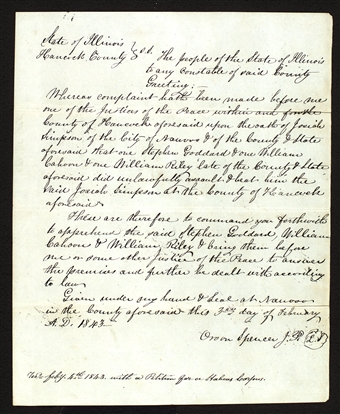 State of Illinois
Hancock County } s.s. The people of the State of Illinois
to any Constable of said County
Greeting;
Whereas complaint hath been made before me
one of the Justices of the Peace within and
County of Hancock aforesaid upon the oath of Josiah
Simpson of the City of Nauvoo & of the County & State
aforesaid that one Stephen Goddard & one William
Cahoon & one William Riley late of the County & State
aforesaid did unlawfully assault & beat him the
said Josiah Simpson at the County of Hancock
aforesaid
These are therefore to command you forthwith
to apprehend the said Stephen Goddard, William
Cahoon & William Riley & bring them before
me or some other Justice of the Peace to answer
the premises and further be dealt with according
to law
Given under my hand & Seal at Nauvoo
in the County aforesaid this 3rd day of February
A.D. 1843
Orson Spencer J.P.
4th 1843. with a Petition for a Habeas Corpus.